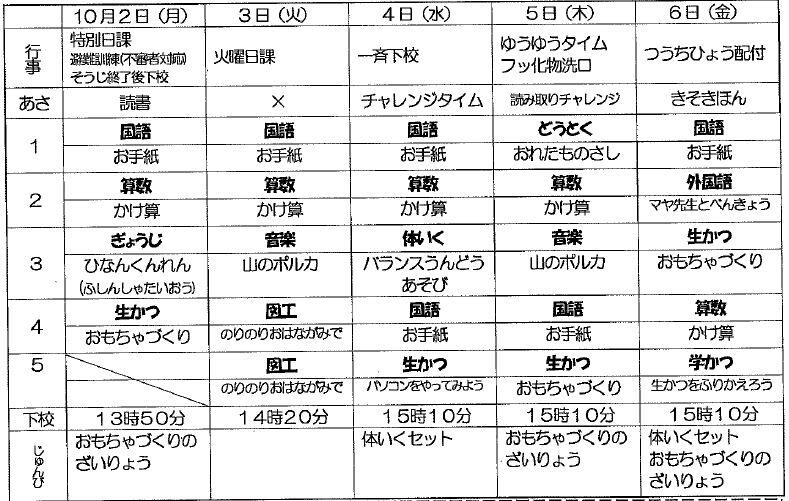 10月2日(月) 3日(火) 4日(水) 5日(木) 6日(金)
行事
特別日課
避難訓練(不審者対応)
そうじ終了後下校
火曜日課
一斉下校
ゆうゆうタイム
フッ化物洗口
つうちひょう配付
あさ 読書 × チャレンジタイム 読み取りチャレンジ きそきほん
1 国語 国語 国語 どうとく 国語
お手紙 お手紙 お手紙 おれたものさし お手紙
2 算数 算数 算数 算数 外国語
かけ算 かけ算 かけ算 かけ算 マヤ先生とべんきょう
3 ぎょうじ 音楽 体いく 音楽 生かつ
ひなんくんれん
(ふしんしゃたいおう)
山のポルカ
バランスうんどう
あそび
山のポルカ
おもちゃづくり
4 生かつ 図工 国語 国語 算数
おもちゃづくり のりのりおはながみで お手紙 お手紙 かけ算
5 図工 生かつ 生かつ 学かつ
のりのりおはながみで パソコンをやってみよう おもちゃづくり 生かつをふりかえろう
下校 13時50分 14時20分 15時10分 15時10分 15時10分
じゅんび
おもちゃづくりの
ざいりょう
体いくセット
おもちゃづくりの
ざいりょう
体いくセット
おもちゃづくりの
ざいりょう